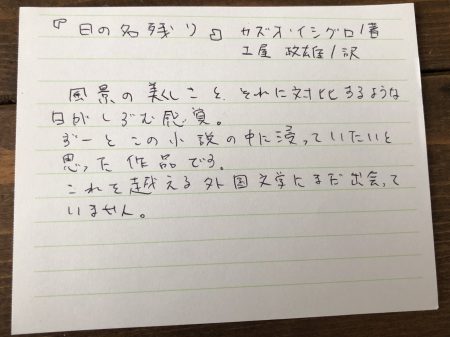 『日の名残り』 カズオ・イシグロ/著
土屋 政雄/訳
風景の美しさと、それに対比するような
日がしずむ感覚。
ずーとこの小説の中に浸っていたいと
思った作品です。
これを越える外国文学にまだ出会って
いません。